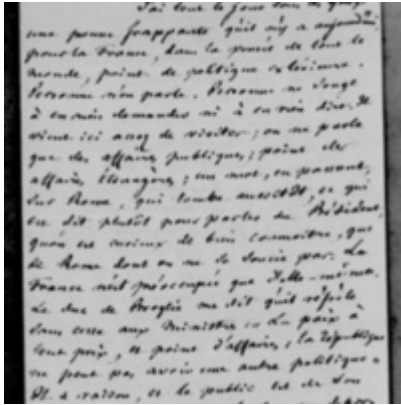 J'ai tous le jours
une preuve frappante qu'il n'y a aujourd'hui
pour la France, dans la pensée de tout le
monde, point de politique extérieure.
Personne n'en parle. Personne ne songe
à en rien demander ni à en rien dire. Il
vient ici assez de visites ; on ne parle
que des affaires publiques ; point des
affaires étrangères ; un mot, en passant,
sur Rome, qui tombe aussitôt, ce qui
est dit plutôt pour parler du Président,
qu'on est curieux de bien connoitre, que
de Rome dont on ne se soucie pas. La
France n'est préoccupée que d'elle-même.
Le duc de Broglie me dit qu'il répète
sans cesse aux Ministres : " La paix à
tout prix, et point d'affaires ; la République
ne peut pas avoir une autre politique "
Il a raison, et le public est de son